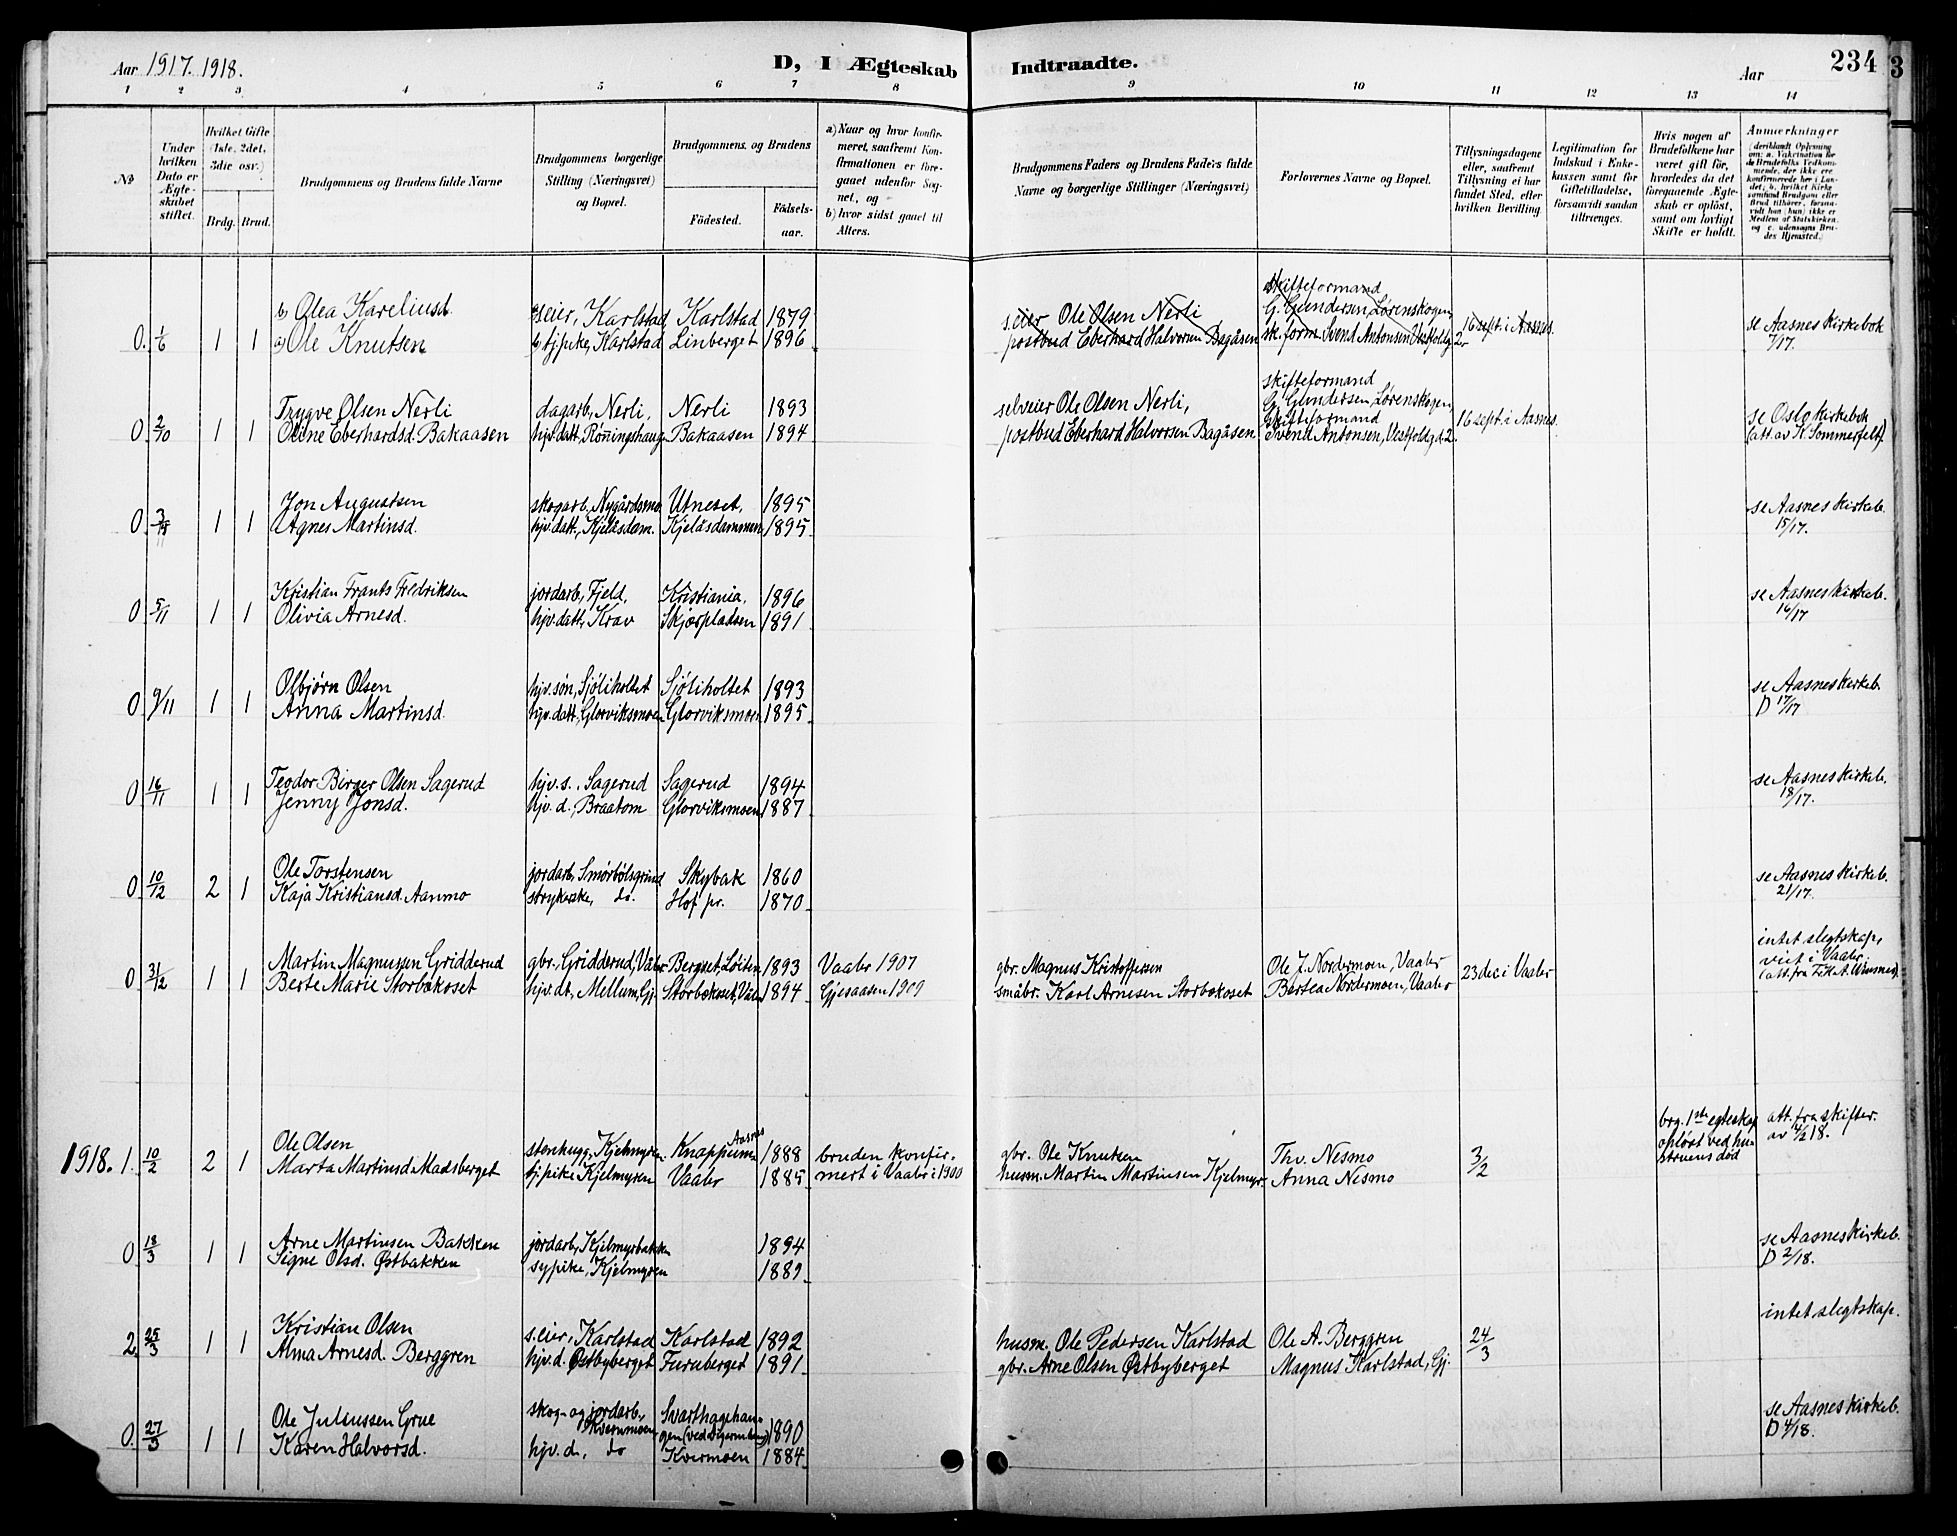 Aar 1917. 1918.
D, I Ægteskab Indtraadte.
Aar
234
3
1 2 3 4 5 6 7 8 9 10 11 12 13 14
№
Under hvilken Dato er Ægteskabet stiftet.
Hvilket Gifte (1ste, 2det, 3die osv.)
Brdg. Brud.
Brudgommens og Brudens fulde Navne
Brudgommens borgerlige Stilling (Næringsvei) og Bopæl.
Brudgommens og Brudens
Födested.
Födselsaar.
a) Naar og hvor konfirmeret, saafremt Konfirmationen er foregaaet udenfor Sognet, og
b) hvor sidst gaaet til Alters.
Brudgommens Faders og Brudens Faders fulde Navne og borgerlige Stillinger (Næringsvei)
Forlovernes Navne og Bopæl.
Tillysningsdagene eller, saafremt Tillysning ei har fundet Sted, efter hvilken Bevilling.
Legitimation for Indskud i Enkekassen samt for Giftetilladelse, forsaavidt saadan tiltrænges.
Hvis nogen af Brudefolkene har været gift för, hvorledes da det foregaaende Ægteskab er oplöst, samt om lovligt Skifte er holdt.
Anmærkninger (deriblandt Oplysning om: a. Vakcination for de Brudefolks Vedkommende, der ikke ere konfirmerede her i Landet; b. hvilket Kirkesamfund Brudgom eller Brud tilhörer, forsaavidt han (hun) ikke er Medlem af Statskirken, og c. udensogns Brudes Hjemsted.)
b) Olea Kareliusd. seier, Karlstad Karlstad 1879 s.eier Ole Olsen Nerli skifteformand G. Gundersen, Lørenskogen
0. 1/6 1 1 a) Ole Knutsen b) tj.pike, Karlstad Linberget 1896 postbud Eberhard Halvorsen Bagåsen sk.form. Svend Antonsen Vestfoldg. 2. 16 sept. i Aasnes. se Aasnes kirkebok 7/17.
Trygve Olsen Nerli dagarb., Nerli, Nerli 1893 selveier Ole Olsen Nerli, skifteformand G. Gundersen, Lørenskogen,
0 2/10 1 1 Oline Eberhardsd. Bakaasen hjv. datt, Rönningshaug Bakaasen 1894 postbud Eberhard Halvorsen Bagåsen skifteformand Svend Antonsen, Vestfoldg. 2. 16 sept. i Aasnes. se Oslo kirkebok (att. av K. Sommerfelt)
Jon Augustsen skogarb, Nygårdsmo Utneset, 1895 se Aasnes kirkeb.
0 3/11 1 1 Agnes Martinsd. hjv. datt., Kjelåsdam. Kjelåsdammen 1895 15/17.
Kristian Frants Fredriksen jordarb, Fjeld, Kristiania, 1896 se Aasnes kirkeb.
0 5/11 1 1 Olivia Arnesd. hjv. datt, Krav Skjærpladsen 1891 16/17
Olbjørn Olsen hjv. søn, Sjöliholtet Sjöliholtet 1893 se Aasnes kirkeb.
0 9/11 1 1 Anna Martinsd. hjv. datt., Glorviksmoen Glorviksmoen 1895 D 17/17
Teodor Birger Olsen Sagerud hjv. s., Sagerud Sagerud 1894 se Aasnes kirkeb.
0 16/11 1 1 Jenny Jonsd. hjv. d., Braatom Glorviksmoen 1887 18/17.
Ole Torstensen jordarb, Smörbölsgrind Skybak 1860 se Aasnes kirkeb.
0 10/12 2 1 Kaja Kristiansd. Aanmo strykerske, do. Hof pr. 1870 21/17.
Martin Magnussen Gridderud gbr., Gridderud, Våler Bergset, Löiten 1893 Vaaler 1907 gbr. Magnus Kristoffersen Ole J. Nordermoen, Vaaler intet slegtskap, viet i Vaaler
0 31/12 1 1 Berte Marie Storbekoset hjv. dt, Mellum, Gj. Storbekoset, Våler 1894 Gjesaasen 1909 småbr. Karl Arnesen Storbekoset Bertea Nordermoen, Vaaler 23 dec i Vaaler
Ole Olsen stenhugg., Kjelmyren. Knappum Aasnes 1888 bruden konfir- gbr. Ole Knutsen Thv. Nesmo brg. 1ste egteskap opløst ved hustruens død att. fra skifter. av 14/2 18.
1918. 1. 10/2 2 1 Marta Martinsd. Madsberget tj.pike Kjelmyren Vaaler 1885 mert i Vaaler i 1900 husm. Martin Martinsen Kjelmyr. Anna Nesmo 3/2
Arne Martinsen Bakken jordarb, Kjelmyrbakken 1894 se Aasnes kirkeb.
0 18/3 1 1 Signe Olsd. Østbakken sypike, Kjelmyren 1889 D 2/18.
Kristian Olsen s.eier, Karlstad Karlstad 1892 husm. Ole Pedersen Karlstad Ole A. Berggren intet slegtskap.
2. 25/3 1 1 Alma Arnesd. Berggren hjv. d. Østbyberget Furuberget 1891 gbr. Arne Olsen Østbyberget Magnus Karlstad, Gj. 24/3
Ole Juliussen Grue skog- og jordarb., Kvernmoen 1890 se Aasnes kirkeb.
0. 27/3 1 1 Karen Halvorsd. hjv. d., do Kvermoen 1884 D 4/18.